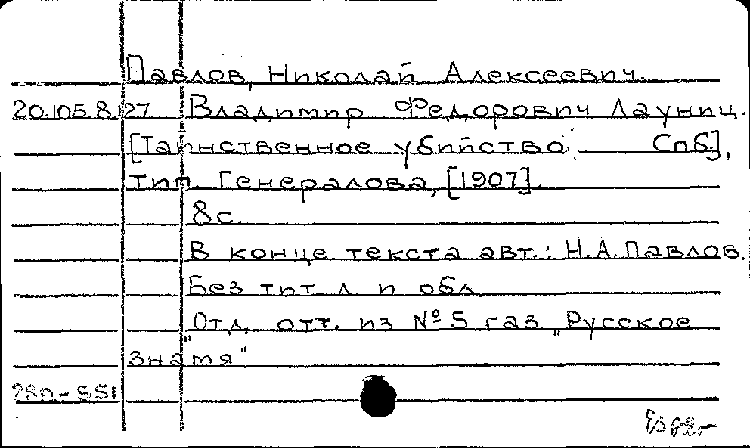 Павлов, Николай Алексеевич.
20.105.8.127 Владимир Федорович Лауниц.
[Таинственное убийство. Спб],
тип. Генералова, [1907].
8с.
В конце текста авт.: Н.А.Павлов.
Без тит. л. и обл.
Отд. отт. из №5 газ. "Русское
знамя"